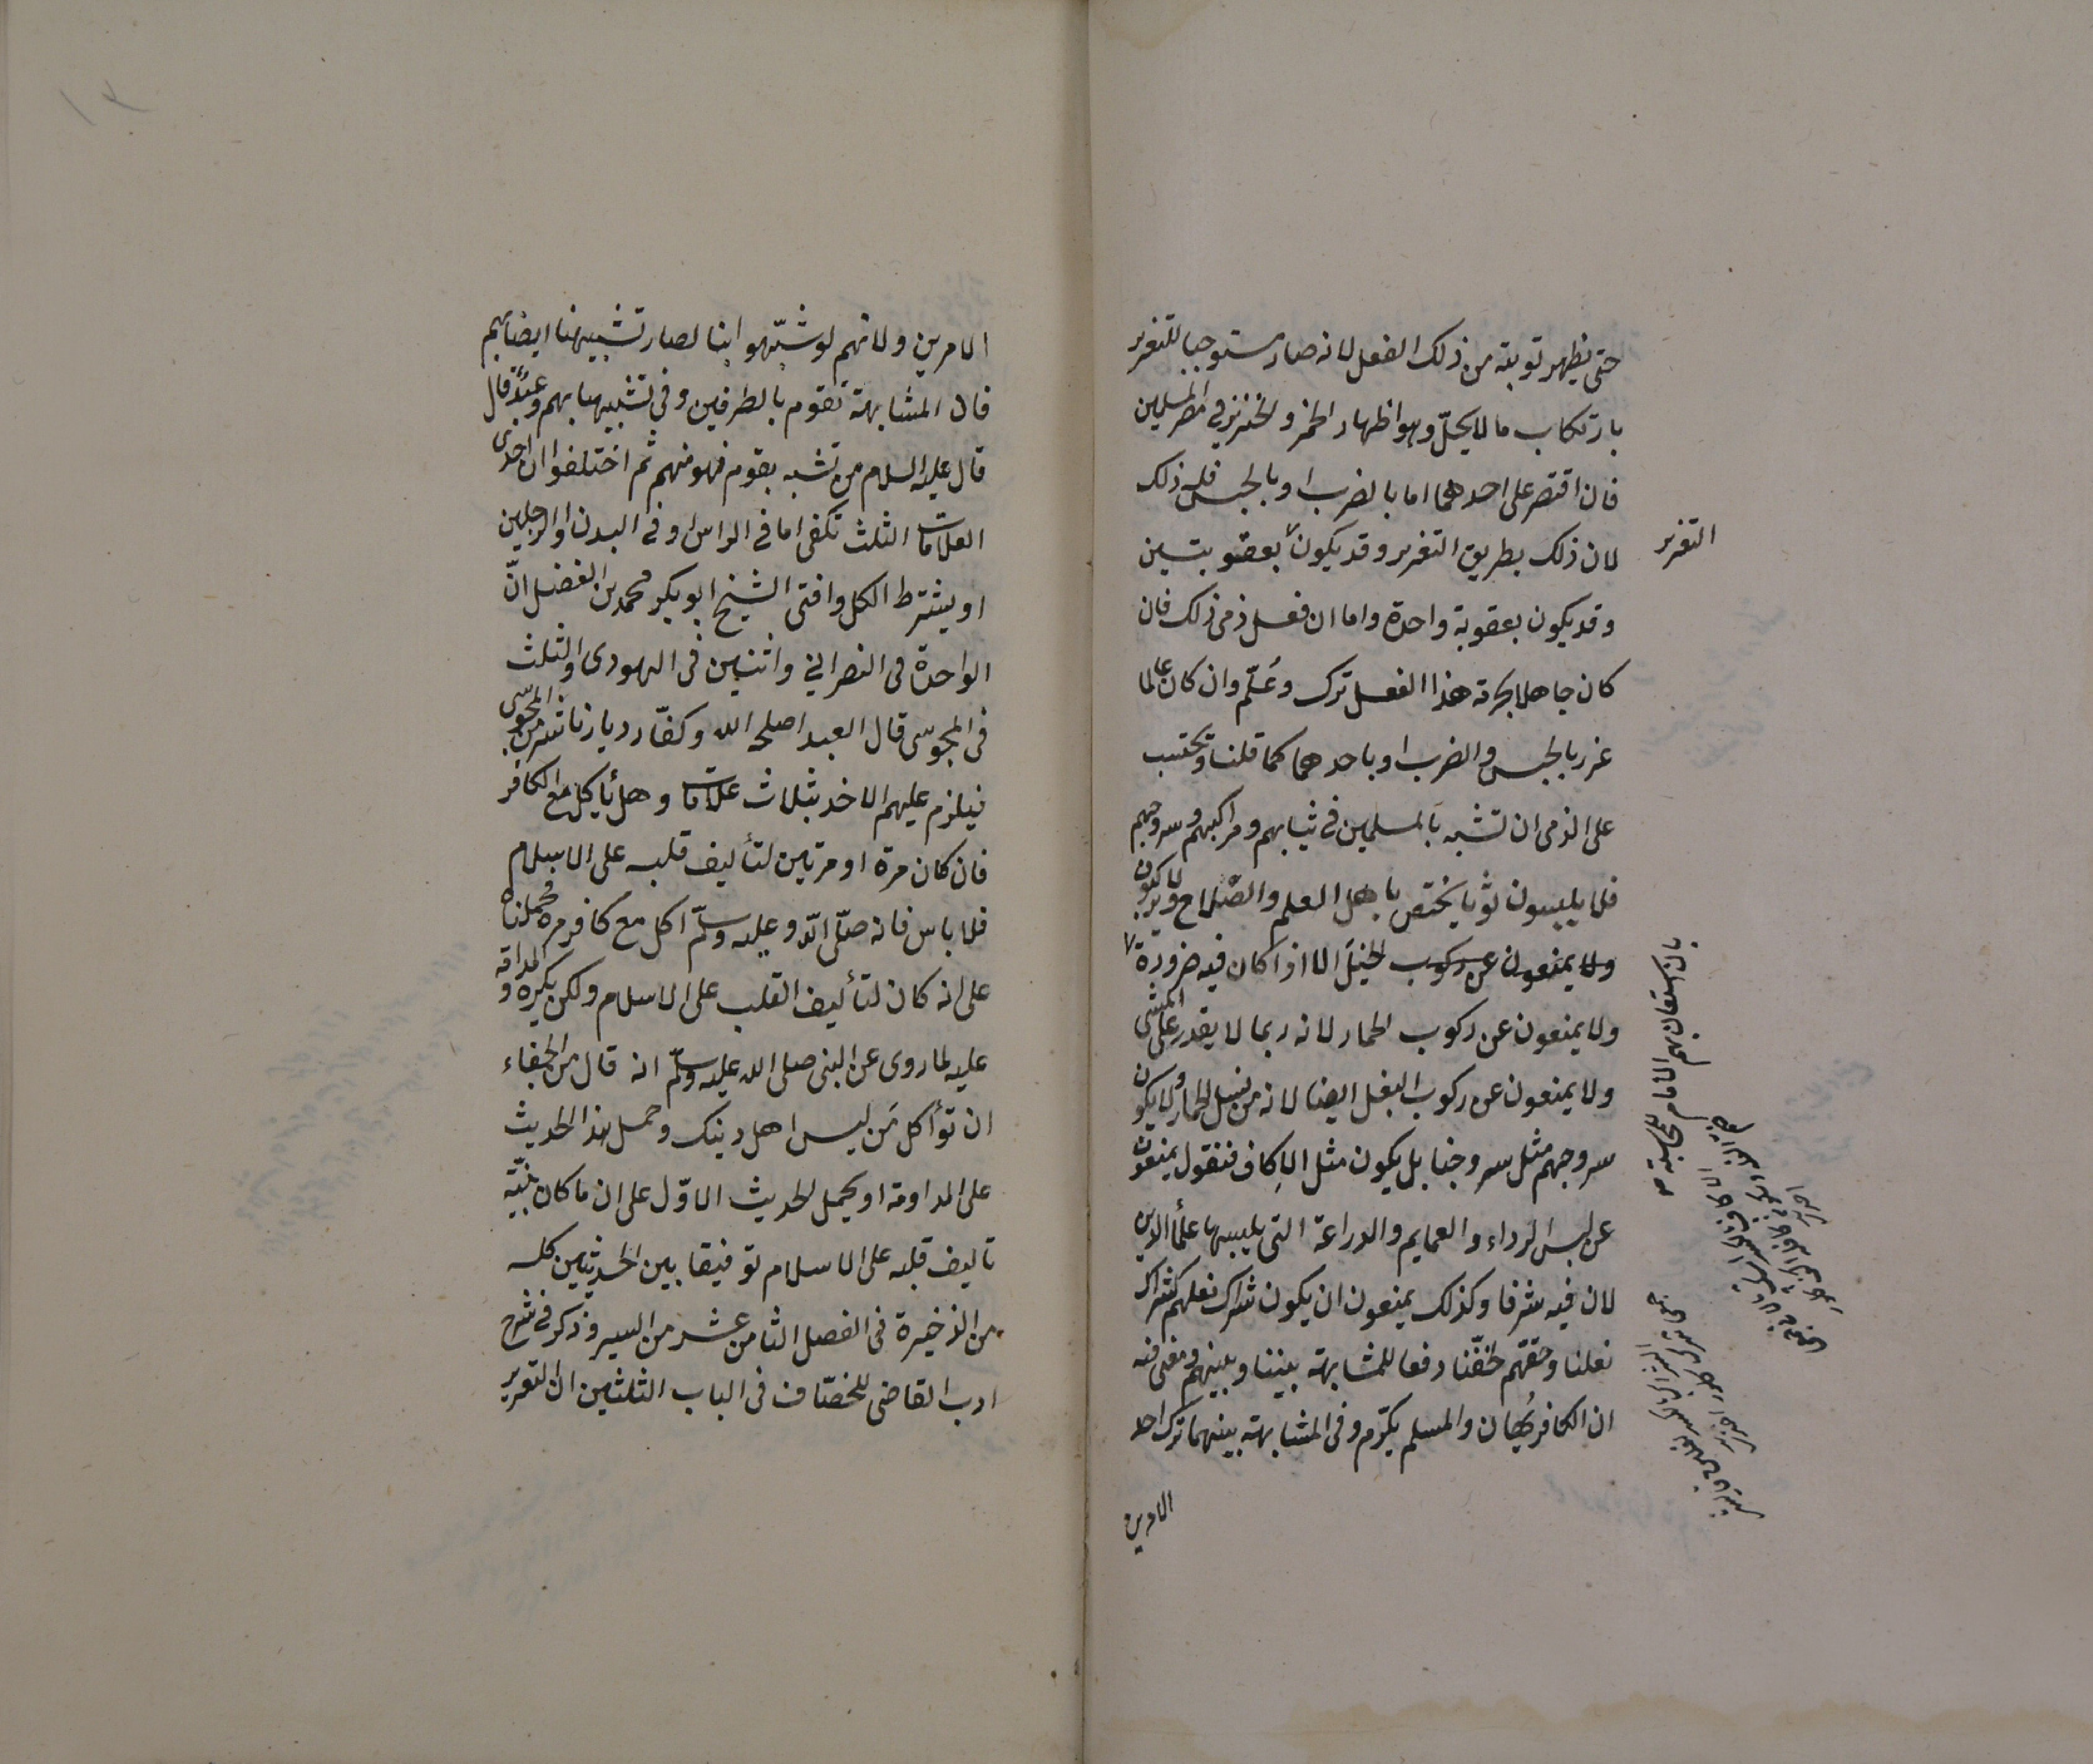 حتى يظهر توبته من ذلك الفعل لانه صار مستوجبا للتعزير
بارتكاب ما لا يحلّ وهو اظهار الخمر والخنزير في امصار المسلمين
فان اقتصر على احدهما اما بالضرب او بالحبس فله ذلك
لان ذلك بطريق التعزير وقد يكون بعقوبتين
التعزير
وقد يكون بعقوبة واحدة واما ان فعل ذمى ذلك فان
كان جاهلا بحرمة هذا الفعل ترك وعُلّم وان كان عالما
عزر بالحبس والضرب او باحدهما كما قلنا وتحتسب
على الذمى ان تشبه بالمسلمين فى ثيابهم ومراكبهم وسروجهم
فلا يلبسون ثوبا يختص باهل العلم والصّلاح ولا يركبون
ولا يمنعون عن ركوب الخيل الا اذا كان فيه ضرورة
بان استعان بهم الامام
ولا يمنعون عن ركوب الحمار لانه ربما لا يقدر على المشى
ولا يمنعون عن ركوب البغل ايضا لانه من نسل الحمار ولا يكون
سروجهم مثل سروجنا بل يكون مثل الاِكاف فنقول يمنعون
عن لبس الرداء والعمايم والدراعة التى يلبسها علماء الدين
لان فيه شرفا وكذلك يمنعون ان يكون شراك نعلهم كشراك
نعلنا وخفّهم كخفّنا دفعا للمشابهة بيننا وبينهم ومعنى فيه
ان الكافر يُهان والمسلم يكرّم وفى المشابهة بينهما ترك احد
الامرين
الامرين ولانهم لو شبّهوا بنا لصار تشبيهنا ايضا بهم
فان المشابهة تقوم بالطرفين وفى تشبيهنا بهم وعيد قال
قال عليه السلام من تشبه بقوم فهو منهم ثم اختلفوا ان احدى
العلامات الثلث تكفى اما فى الراس او فى البدن او الرجلين
او يشترط الكل وافتى الشيخ ابو بكر محمد بن الفضل انّ
الواحدة فى النصرانى واثنين فى اليهودى والثلث
فى المجوسى قال العبد اصلحه الله وكفّار ديارنا شر من المجوسى
فيلزم عليهم الاخذ بثلاث علامات وهل يأكل مع الكافر
فان كان مرة او مرتين لتأليف قلبه على الاسلام
فلا باس فانه صلّى الله عليه وسلّم اكل مع كافر مرة فحملناه
على انه كان لتأليف القلب على الاسلام ولكن يكره المداومة
عليه لما روى عن النبى صلى الله عليه وسلّم انه قال من الجفاء
ان تؤاكل مَن ليس اهل دينك وحمل هذا الحديث
على المداومة او يحمل الحديث الاوّل على ان ما كان بنيّة
تاليف قلبه على الاسلام توفيقا بين الحديثين كله
من الذخيرة فى الفصل الثامن عشر من السير وذكر فى شرح
ادب القاضى للخصّاف فى الباب الثلثين ان التعزير